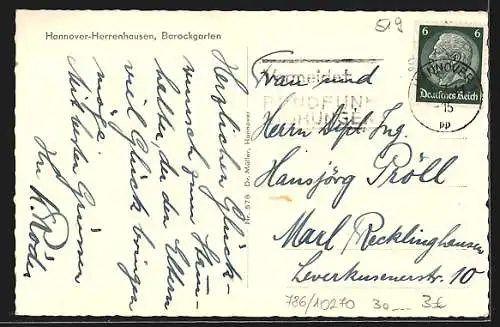 Hannover-Herrenhausen, Barockgarten
519
Herzlichen Glück-
wunsch zum Stamm-
halter, der den Eltern
viel Glück bringen
möge.
Mit besten Grüssen
Ihr R. Röder
Nr. 578 Dr. Müller, Hannover
6 6
Deutsches Reich
HANNOVER
15
pp
RUNDFUNK
Frau und
Herrn Dipl. Ing.
Hansjörg Pröll
Marl Recklinghausen
Leverkusenerstr. 10
786/10270